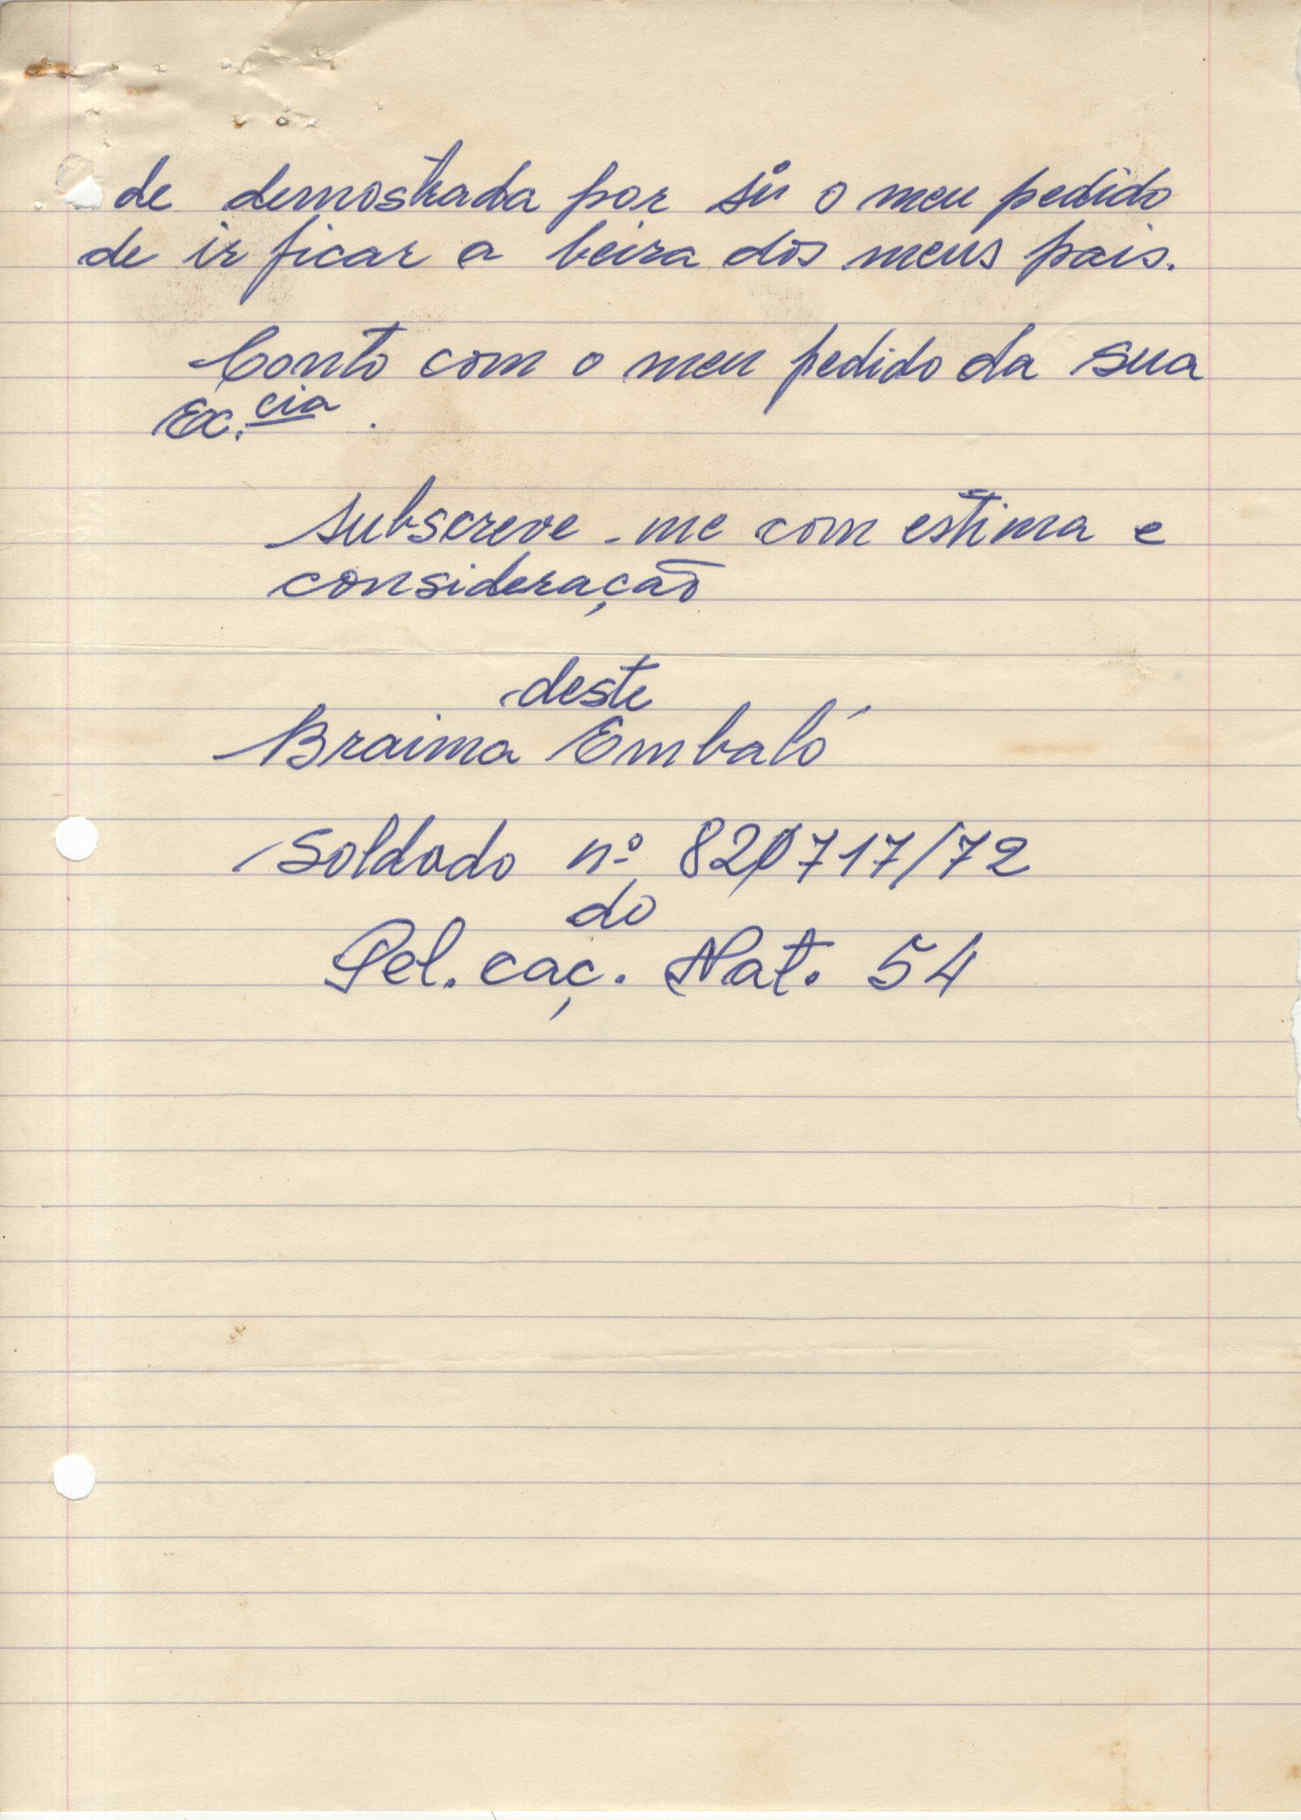 de demostrada por si o meu pedido
de ir ficar a beira dos meus pais.
Conto com o meu pedido da sua
Ex.cia.
subscreve-me com estima e
consideração
deste
Braima Embaló
Soldado nº 820717/72
do
Pel. caç. Nat. 54